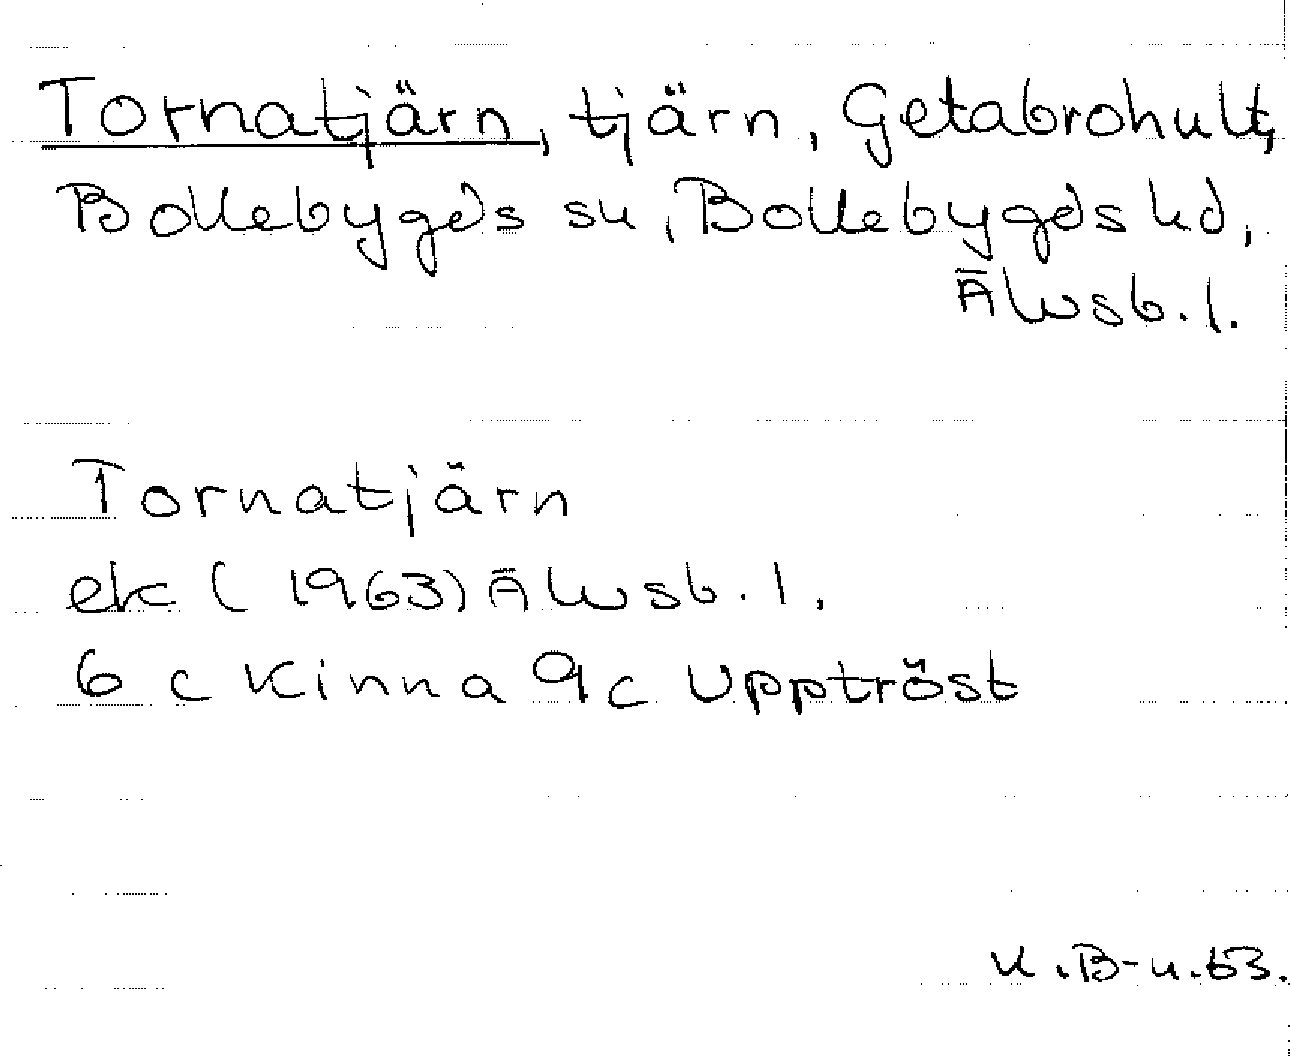 Tornatjärn, tjärn, Getabrohult,
Bollebygds sn, Bollebygds hd,
Älvsb. l.
Tornatjärn
ek (1963) Älvsb. l.
6 c Kinna 9 c Upptröst
K.B-n. 63.